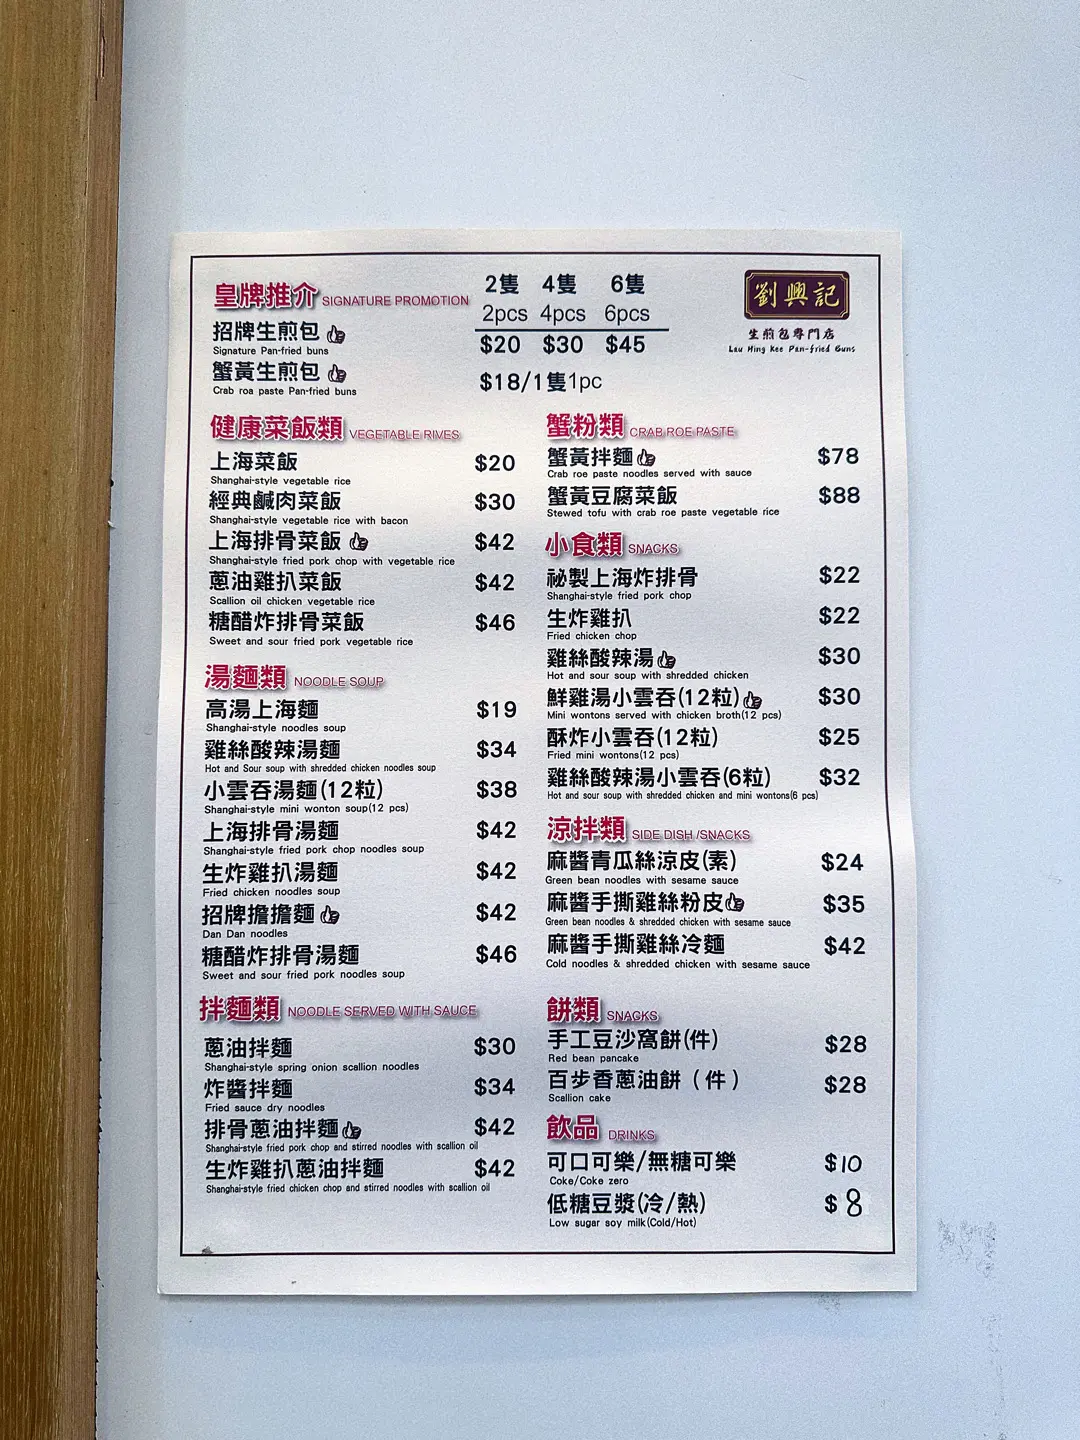 皇牌推介 SIGNATURE PROMOTION
2隻 4隻 6隻
2pcs 4pcs 6pcs
招牌生煎包 $20 $30 $45
Signature Pan-fried buns
蟹黃生煎包 $18/1隻1pc
Crab roa paste Pan-fried buns
劉興記
生煎包專門店
Lau Hing Kee Pan-fried Buns
健康菜飯類 VEGETABLE RIVES
上海菜飯 $20
Shanghai-style vegetable rice
經典鹹肉菜飯 $30
Shanghai-style vegetable rice with bacon
上海排骨菜飯 $42
Shanghai-style fried pork chop with vegetable rice
蔥油雞扒菜飯 $42
Scallion oil chicken vegetable rice
糖醋炸排骨菜飯 $46
Sweet and sour fried pork vegetable rice
湯麵類 NOODLE SOUP
高湯上海麵 $19
Shanghai-style noodles soup
雞絲酸辣湯麵 $34
Hot and Sour soup with shredded chicken noodles soup
小雲吞湯麵(12粒) $38
Shanghai-style mini wonton soup(12 pcs)
上海排骨湯麵 $42
Shanghai-style fried pork chop noodles soup
生炸雞扒湯麵 $42
Fried chicken noodles soup
招牌擔擔麵 $42
Dan Dan noodles
糖醋炸排骨湯麵 $46
Sweet and sour fried pork noodles soup
拌麵類 NOODLE SERVED WITH SAUCE
蔥油拌麵 $30
Shanghai-style spring onion scallion noodles
炸醬拌麵 $34
Fried sauce dry noodles
排骨蔥油拌麵 $42
Shanghai-style fried pork chop and stirred noodles with scallion oil
生炸雞扒蔥油拌麵 $42
Shanghai-style fried chicken chop and stirred noodles with scallion oil
蟹粉類 CRAB ROE PASTE
蟹黃拌麵 $78
Crab roe paste noodles served with sauce
蟹黃豆腐菜飯 $88
Stewed tofu with crab roe paste vegetable rice
小食類 SNACKS
祕製上海炸排骨 $22
Shanghai-style fried pork chop
生炸雞扒 $22
Fried chicken chop
雞絲酸辣湯 $30
Hot and sour soup with shredded chicken
鮮雞湯小雲吞(12粒) $30
Mini wontons served with chicken broth(12 pcs)
酥炸小雲吞(12粒) $25
Fried mini wontons(12 pcs)
雞絲酸辣湯小雲吞(6粒) $32
Hot and sour soup with shredded chicken and mini wontons(6 pcs)
涼拌類 SIDE DISH /SNACKS
麻醬青瓜絲涼皮(素) $24
Green bean noodles with sesame sauce
麻醬手撕雞絲粉皮 $35
Green bean noodles & shredded chicken with sesame sauce
麻醬手撕雞絲冷麵 $42
Cold noodles & shredded chicken with sesame sauce
餅類 SNACKS
手工豆沙窩餅(件) $28
Red bean pancake
百步香蔥油餅（件） $28
Scallion cake
飲品 DRINKS
可口可樂/無糖可樂 $10
Coke/Coke zero
低糖豆漿(冷/熱) $8
Low sugar soy milk(Cold/Hot)